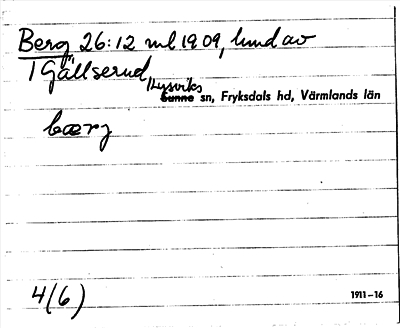 Berg 26:12 ml 1909, lund av
1 Gällserud,
Lysviks
Sunne sn, Fryksdals hd, Värmlands län
bærj
4(6)
1911-16